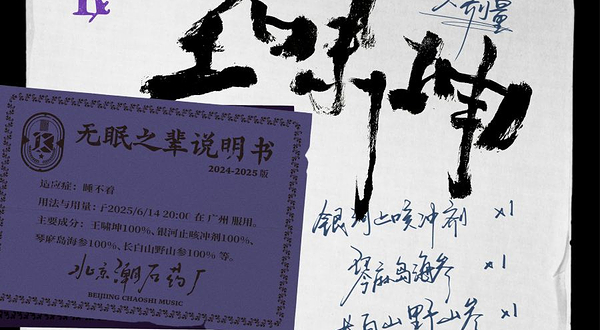 剂量
王啸坤
无眠之辈说明书
2024-2025版
适应症：睡不着
用法与用量：于2025/6/14 20:00 在广州服用。
主要成分：王啸坤100%、银河止咳冲剂100%、
琴麻岛海参100%、长白山野山参100% 等。
北京潮石药厂
BEIJING CHAOSHI MUSIC
银河止咳冲剂 x1
琴麻岛海参 x1
长白山野山参 x1